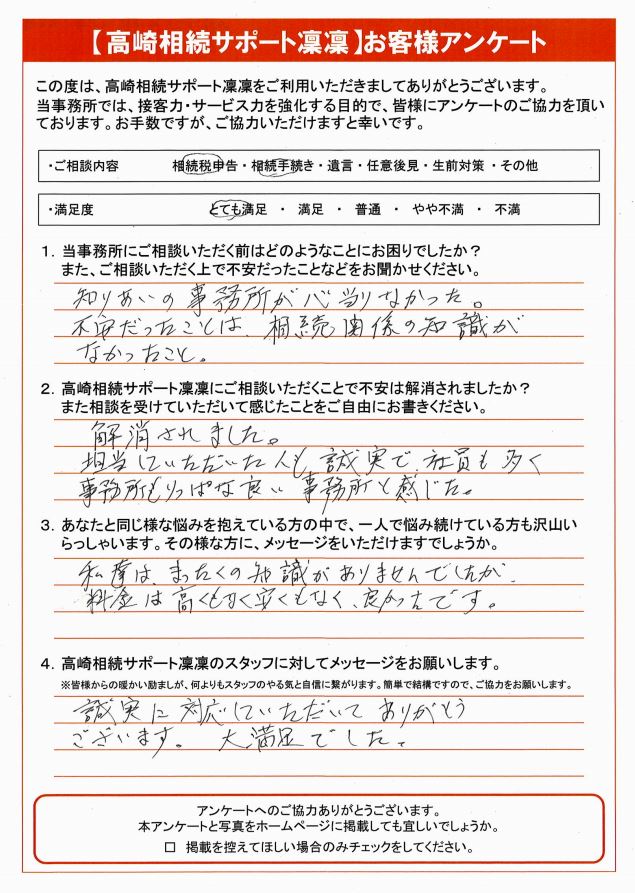 【高崎相続サポート凜凜】お客様アンケート
この度は、高崎相続サポート凜凜をご利用いただきましてありがとうございます。
当事務所では、接客力・サービス力を強化する目的で、皆様にアンケートのご協力を頂い
ております。お手数ですが、ご協力いただけますと幸いです。
・ご相談内容　相続税申告・相続手続き・遺言・任意後見・生前対策・その他
・満足度　とても満足 ・ 満足 ・ 普通 ・ やや不満 ・ 不満
1．当事務所にご相談いただく前はどのようなことにお困りでしたか？
また、ご相談いただく上で不安だったことなどをお聞かせください。
知りあいの事務所が心当りなかった。
不安だったことは、相続関係の知識が
なかったこと。
2．高崎相続サポート凜凜にご相談いただくことで不安は解消されましたか？
また相談を受けていただいて感じたことをご自由にお書きください。
解消されました。
担当していただいた人も誠実で社員も多く
事務所もりっぱな良い事務所と感じた。
3．あなたと同じ様な悩みを抱えている方の中で、一人で悩み続けている方も沢山い
らっしゃいます。その様な方に、メッセージをいただけますでしょうか。
私達は、まったくの知識がありませんでしたが、
料金は高くもなく安くもなく、良かったです。
4．高崎相続サポート凜凜のスタッフに対してメッセージをお願いします。
※皆様からの暖かい励ましが、何よりもスタッフのやる気と自信に繋がります。簡単で結構ですので、ご協力をお願いします。
誠実に対応していただいてありがとう
ございます。大満足でした。
アンケートへのご協力ありがとうございます。
本アンケートと写真をホームページに掲載しても宜しいでしょうか。
□ 掲載を控えてほしい場合のみチェックをしてください。